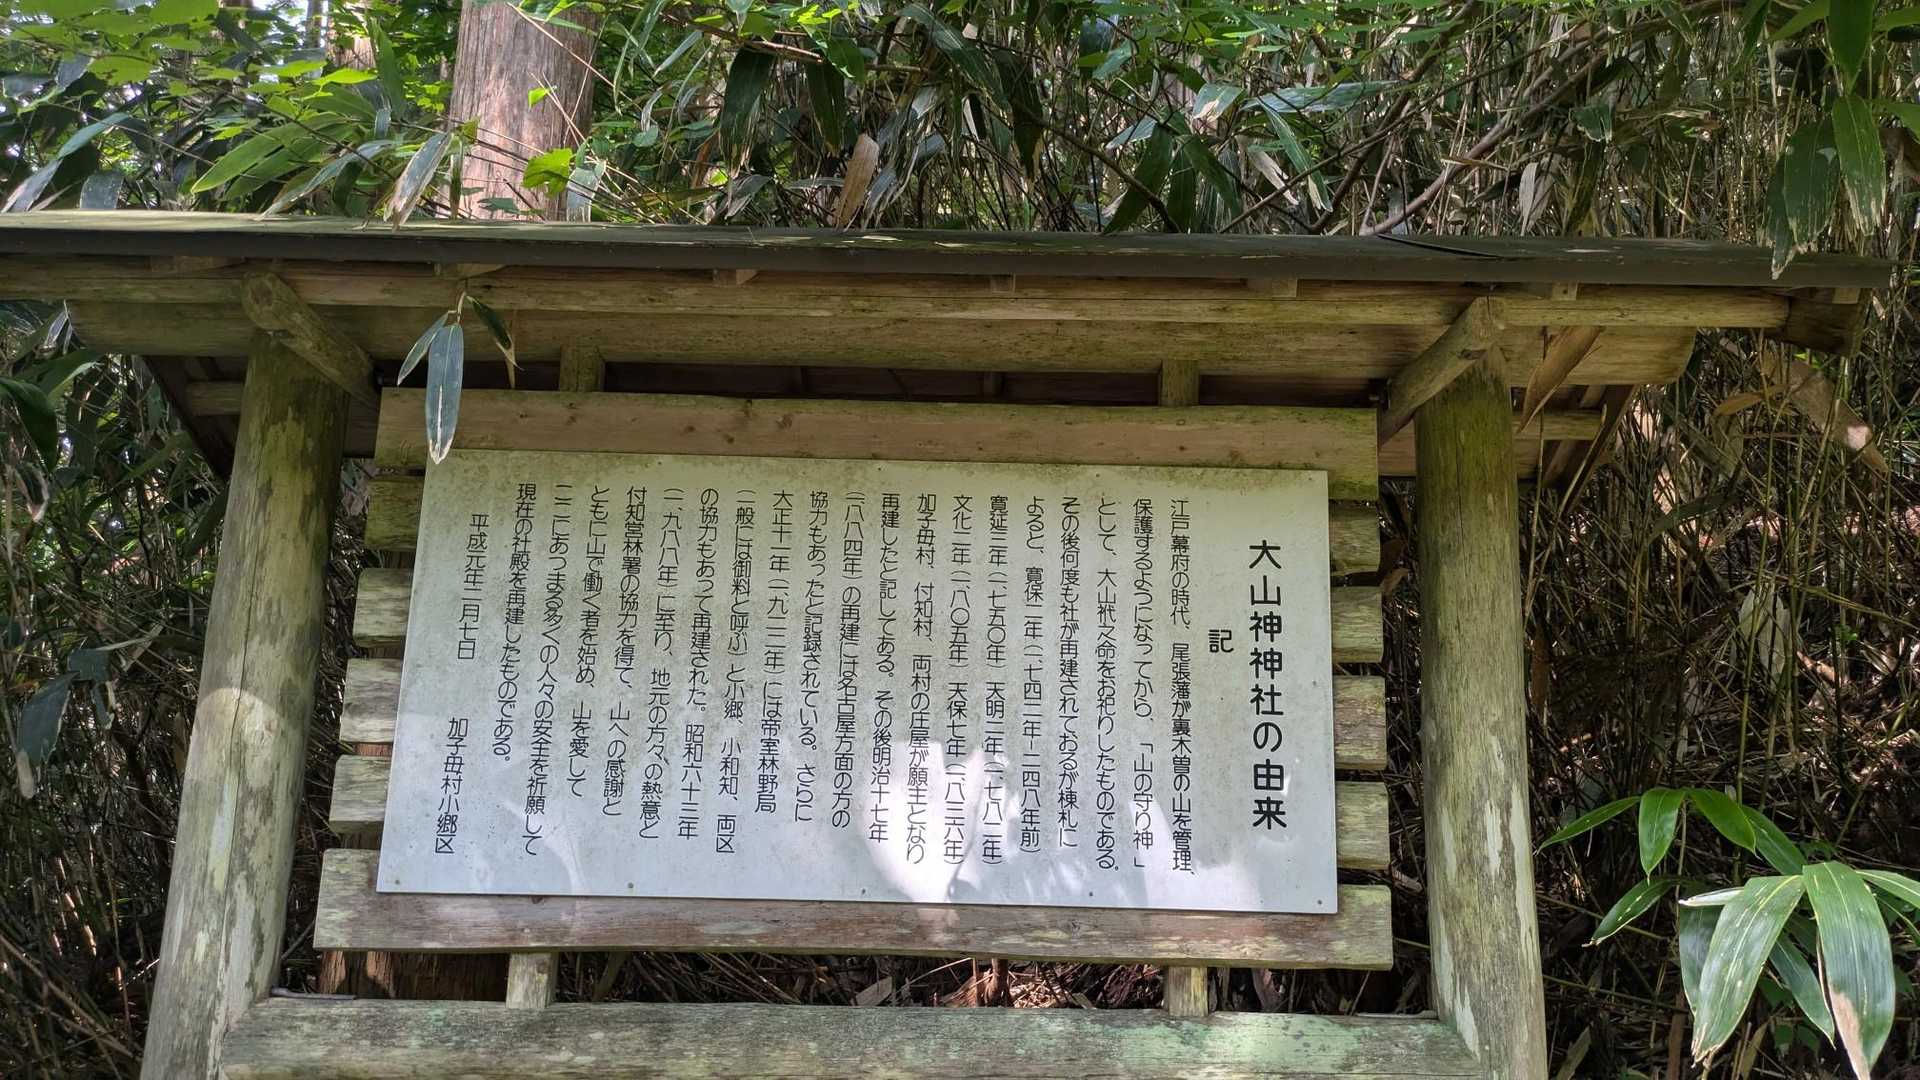 大山神神社の由来
記
江戸幕府の時代、尾張藩が裏木曽の山を管理、
保護するようになってから、「山の守り神」
として、大山祇之命をお祀りしたものである。
その後何度も社が再建されておるが棟札に
よると、寛保二年（一、七四二年ー二四八年前）
寛延三年（一、七五〇年）天明二年（一、七八二年）
文化二年（一、八〇五年）天保七年（一、八三六年）
加子母村、付知村、両村の庄屋が願主となり
再建したと記してある。その後明治十七年
（一、八八四年）の再建には名古屋方面の方の
協力もあったと記録されている。さらに
大正十一年（一、九二二年）には帝室林野局
（一般には御料と呼ぶ）と小郷、小和知、両区
の協力もあって再建された。昭和六十三年
（一、九八八年）に至り、地元の方々の熱意と
付知営林署の協力を得て、山への感謝と
ともに山で働く者を始め、山を愛して
ここにあつまる多くの人々の安全を祈願して
現在の社殿を再建したものである。
平成元年二月七日
加子母村小郷区